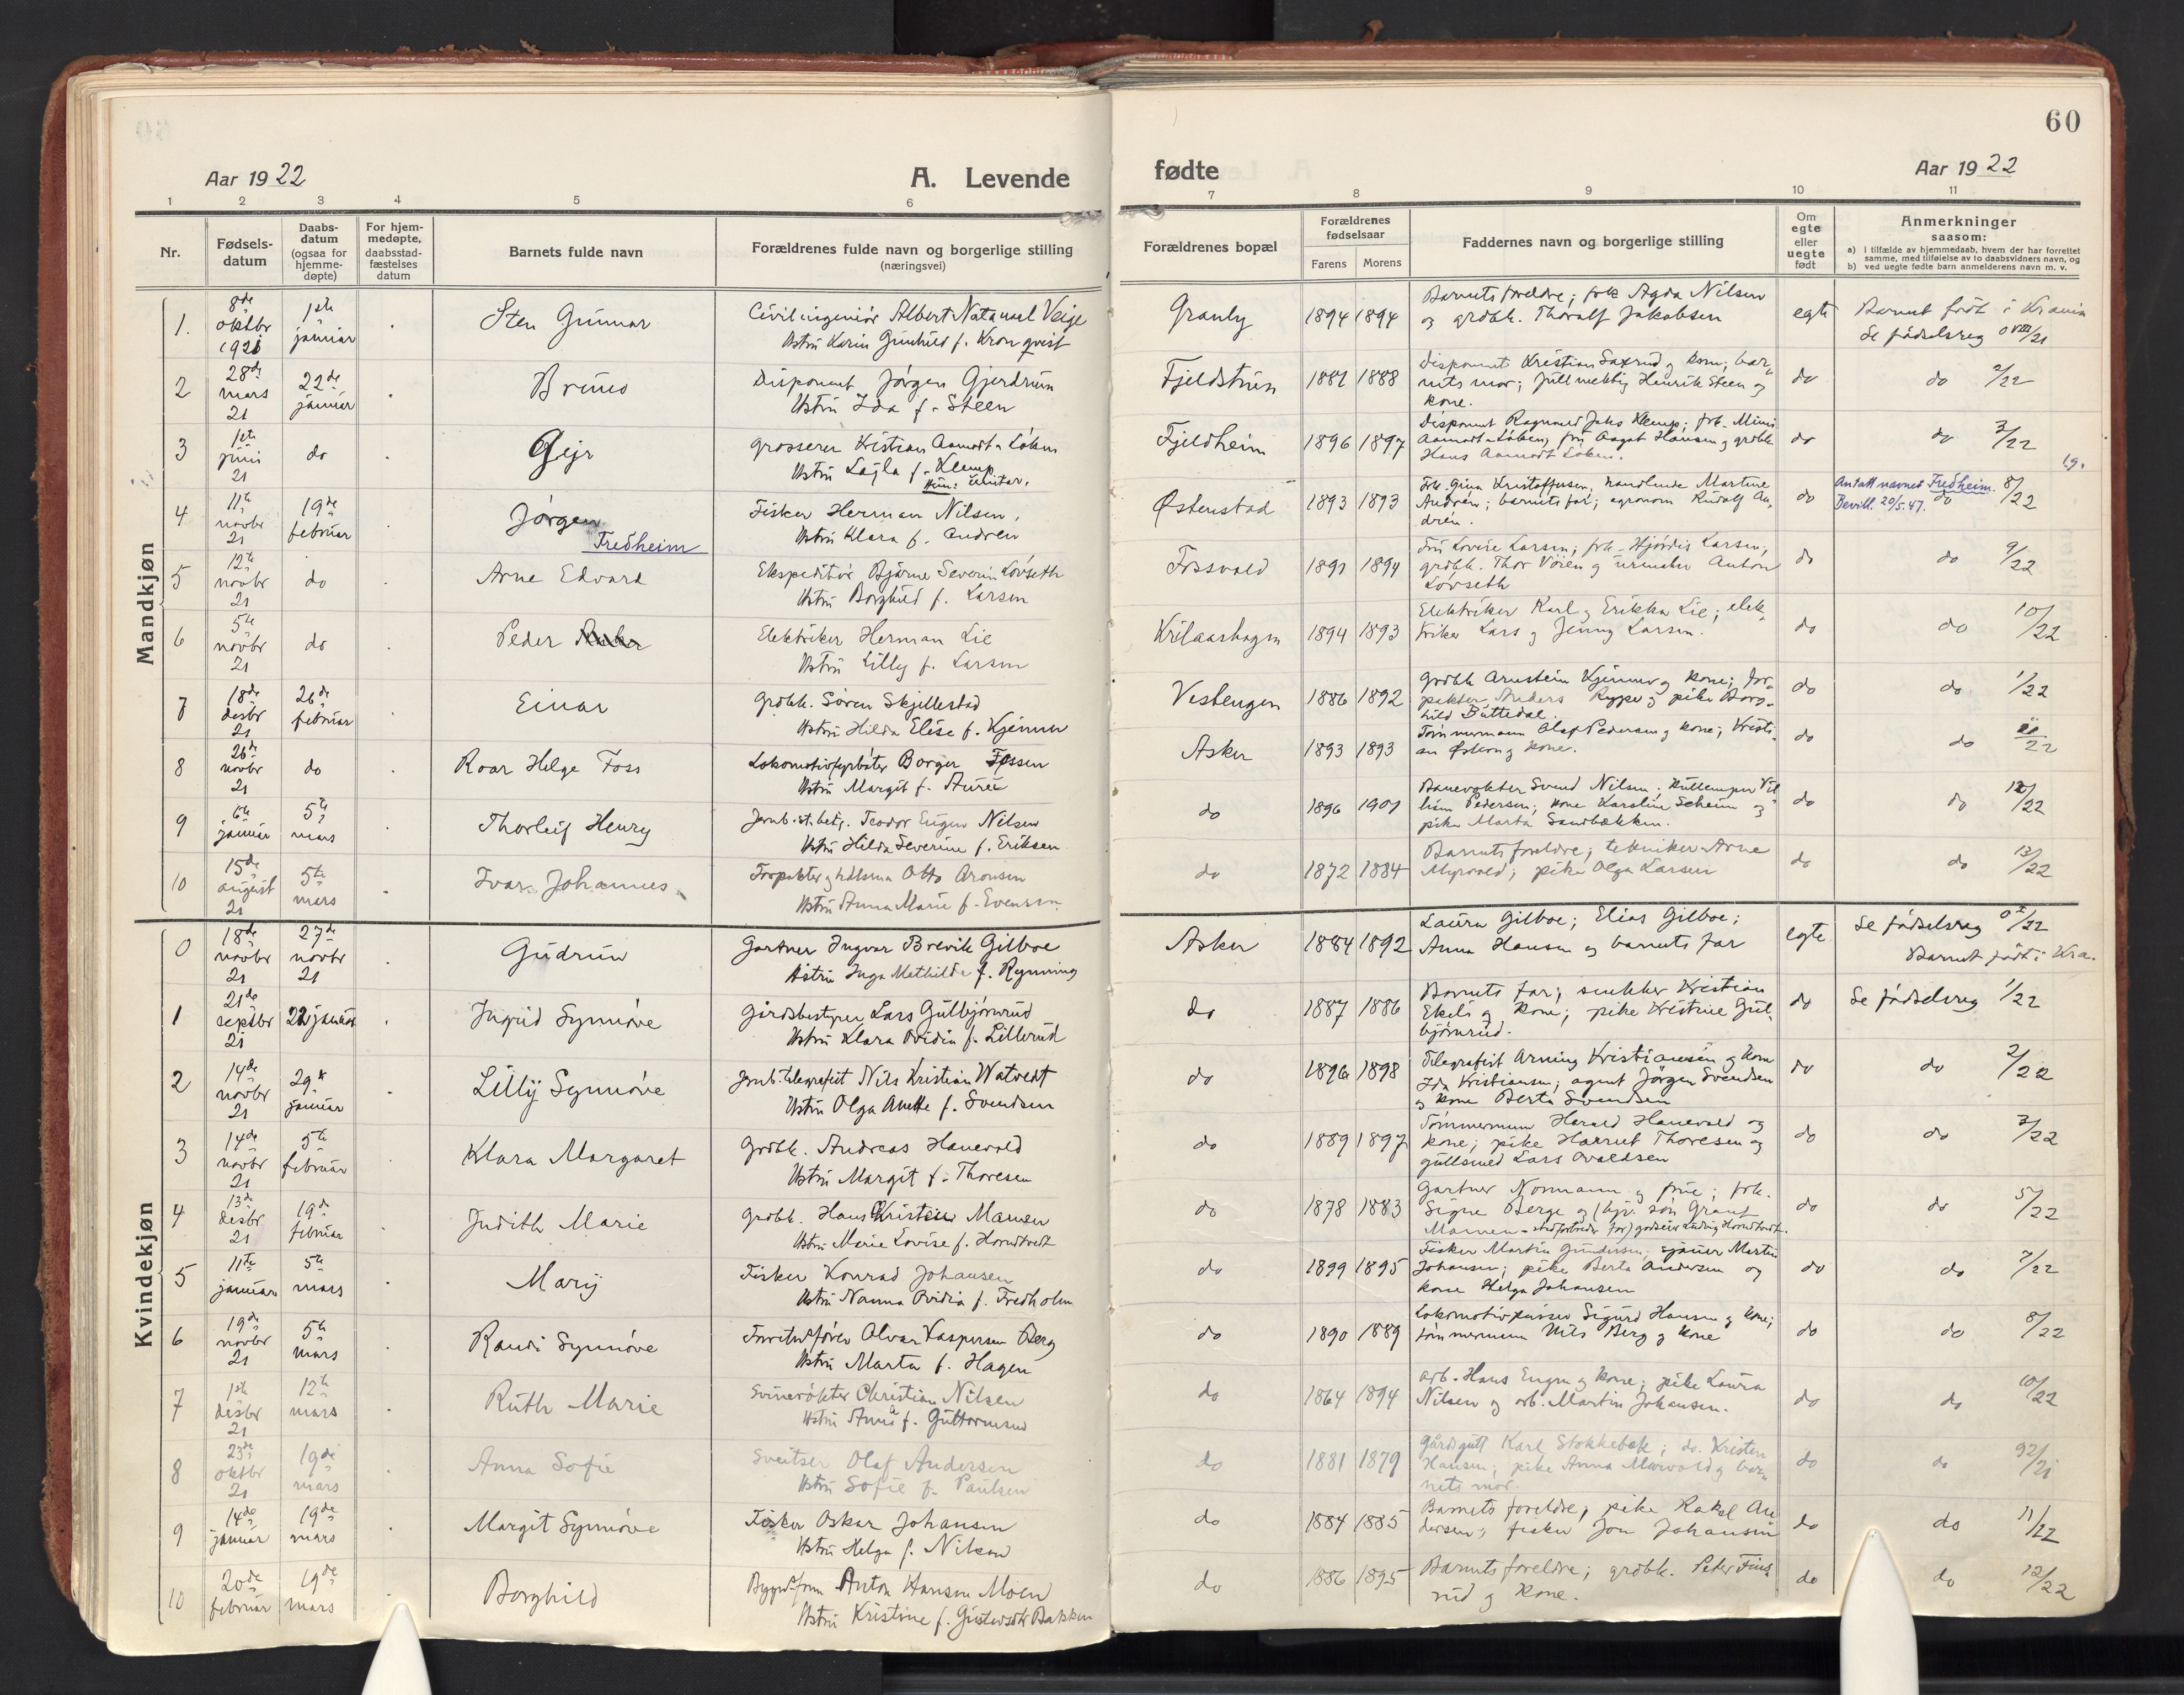 60
Aar 1922
A. Levende
fødte
Aar 1922
1 2 3 4 5 6 7 8 9 10 11
Nr.
Fødsels-
datum
Daabs-
datum
(ogsaa for
hjemme-
døpte)
For hjem-
medøpte,
daabsstad-
fæstelses
datum
Barnets fulde navn
Forældrenes fulde navn og borgerlige stilling
(næringsvei)
Forældrenes bopæl
Forældrenes
fødselsaar
Farens Morens
Faddernes navn og borgerlige stilling
Om
egte
eller
uegte
født
Anmerkninger
saasom:
a) i tilfælde av hjemmedaab, hvem der har forrettet
samme, med tilføielse av to daabsvidners navn, og
b) ved uegte fødte barn anmelderens navn m. v.
Mandkjøn
1. 8de oktbr 1921
1ste januar
Sten Gunnar
Civilingeniør Albert Natanael Veije
Hustru Karin Gunhild f. Kronqvist
Granly 1894 1894
Barnets foreldre; frk Agda Nilsen
og grdbk. Thoralf Jakobsen
egte
Barnet født i Krania
Se fødselsreg 0 VIII/21
2 28de mars 21
22de januar
Bruno
Disponent Jörgen Gjerdrum
Hustru Ida f. Steen
Fjeldstuen 1881 1888
Disponent Kristian Saxrud og kone; bar-
nets mor; fullmektig Henrik Steen og
kone.
do do 2/22
3 1ste juni 21
do
Gejr
Grosserer Kristian Aamodt-Løken
Hustru Lajla f. Klemp
Fjeldheim 1896 1897
Hans Aamodt Løken.
do do 3/22
4 11te novbr 21
19de februar
Jørgen
Fredheim
Fisker Herman Nilsen,
Hustru Klara f. Andrén
Østenstad 1893 1893
Frk. Gina Kristoffersen, handlende Martine
Andrén; barnets far; agronom Rudolf An-
drén.
do
Antatt navnet Fredheim.
Bevill. 20/5.47. do 8/22
5 12te novbr 21
do
Arne Edvard
Ekspeditør Bjarne Severin Løvseth
Hustru Borghild f. Larsen
Fossvold 1891 1894
Fru Lovise Larsen; frk. Hjørdis Larsen;
grdbk. Thor Vøien og urmaker Anton
Løvseth
do do 9/22
6 5te novbr 21
do
Peder
Elektriker Herman Lie
Hustru Lilly f. Larsen
1894 1893
Elektriker Karl og Erikka Lie; elek-
triker Lars og Jenny Larsen.
do do 10/22
7 18de desbr 21
26de februar
Einar
Grdbk. Søren Skjellestad
Hustru Hilda Elise f. Kjenner
Vestengen 1886 1892
Grdbk Arnstein Kjenner og kone; for-
pakter Anders Rype og pike Borg-
hild Buttedal.
do do 1/22
8 26de novbr 21
do
Roar Helge Foss
Lokomotivfyrbøter Borger Fossen
Hustru Margit f. Aurée
Asker 1893 1893
Tømmermann Olaf Pedersen og kone; Kristi-
an Østern og kone.
do do 11/22
9 6te januar
5te mars
Thorleif Henry
Jernb.st.betj. Teodor Eugen Nilsen
Hustru Hilda Severine f. Eriksen
do 1896 1901
Banevokter Svend Nilsen; kullemper Vil-
helm Pedersen; kone Karoline Scheim og
pike Marta Sandbækken.
do do 12/22
10 15de august 21
5te mars
Ivar Johannes
Forpakter og Otto Aronsen
Hustru Anna Marie f. Evensen.
do 1872 1884
Barnets foreldre; tekniker Arne
Myrvold; pike Olga Larsen
do do 13/22
Kvindekjøn
0 18de novbr 21
27de novbr 21
Gudrun
Gartner Ingvar Brevik Gilboe
Hustru Inga Mathilde f. Rynning
Asker 1884 1892
Laura Gilboe; Elias Gilboe;
Anna Hansen og barnets far
egte
Se fødselsreg 0 I/22
Barnet født i Kra.
1 21de septbr 21
22 januar
Ingrid Synnøve
Gårdsbestyrer Lars Gulbjørnrud
Hustru Klara Ovidia f. Lillerud
do 1887 1886
Barnets far; snekker Kristian
Ekeli og kone; pike Kristine Gul-
bjørnrud.
do Se fødselsreg 1/22
2 14de novbr 21
29de januar
Lilly Synnøve
Jernb.telegrafist Nils Kristian Watvedt
Hustru Olga Anette f. Svendsen
do 1896 1898
Telegrafist Arning Kristiansen og kone
Ida Kristiansen; agent Jørgen Svendsen
og kone Berta Svendsen
do do 2/22
3 14de novbr 21
5te februar
Klara Margaret
Grdbk. Andreas Hanevold
Hustru Margit f. Thoresen
do 1889 1897
Tømmermann Harald Hanevold og
kone; pike Harriet Thoresen og
gullsmed Lars Ovaldsen
do do 3/22
4 13de desbr 21
19de februar
Judith Marie
Grdbk. Hans Kristian Mamen
Hustru Marie Lovise f. Horntvedt
do 1878 1883
Gartner Normann og frue; frk.
Signe Berge og (hjv. søn Grant
Mamen - stedfortreder for) godseier Ludvig Horntvedt.
do do 5/22
5 11te januar
5te mars
Mary
Fisker Konrad Johansen
Hustru Nanna Ovidia f. Fredholm
do 1899 1895
Fisker Martin Gundersen, sjauer Martin
Johansen; pike Berta Andersen og
kone Helga Johansen
do do 7/22
6 19de novbr 21
5te mars
Randi Synnøve
Forretnfører Alvar Kaspersen Berg
Hustru Marta f. Hagen
do 1890 1889
Lokomotivpusser Sigurd Hansen og kone;
tømmermann Nils Berg og kone
do do 8/22
7 1ste desbr 21
12te mars
Ruth Marie
Svinerøkter Christian Nilsen
Hustru Anna f. Guttormsen
do 1864 1894
Arb. Hans Engen og kone; pike Laura
Nilsen og arb. Martin Johansen.
do do 10/22
8 23de oktbr 21
19de mars
Anna Sofie
Sveitser Olaf Andersen
Hustru Sofie f. Paulsen
do 1881 1879
Gårdsgutt Karl Stokkebæk; do. Kristen
Hansen; pike Anna Morvold og bar-
nets mor.
do do 92/21
9 14de januar
19de mars
Margit Synnøve
Fisker Oskar Johansen
Hustru Helga f. Nilsen
do 1884 1885
Barnets foreldre, pike Rakel An-
dersen; fisker Jon Johansen
do do 11/22
10 20de februar
19de mars
Borghild
Byggnf.form Anton Hansen Moen
Hustru Kristine f. Gustavsdtr Bakken
do 1886 1895
Barnets foreldre; grdbk. Peter Fins-
rud og kone.
do do 12/22